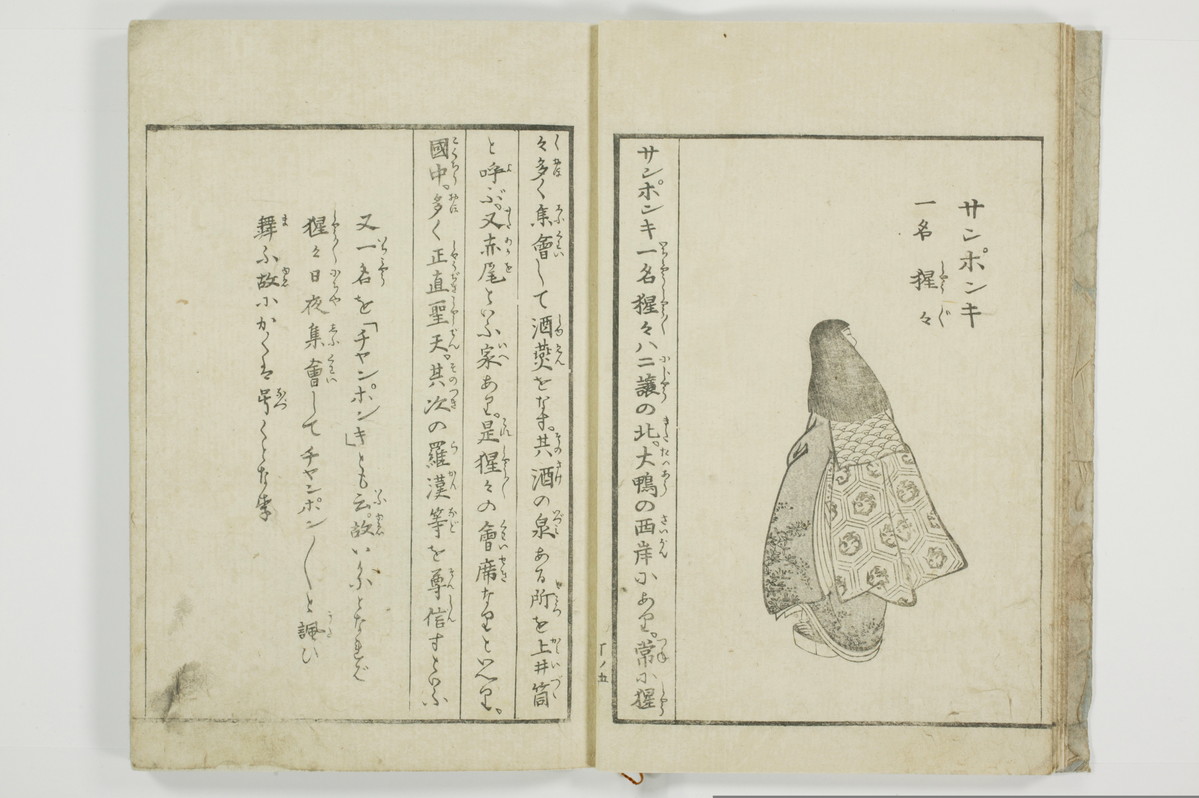 サンポンキ
一名 猩々
サンポンキ一名猩々ハ二譲の北。大鴨の西岸にあり。常に猩
丁ノ五
々多く集會して酒宴をなす。其酒の泉ある所を上井筒
と呼ぶ。又赤尾といふ家あり。是猩々の會席なりといへり。
國中。多く正直聖天。其次の羅漢等を尊信すといふ
又一名を「チャンポンキ」とも云。故いかにとなれば
猩々日夜集會してチャンポン〳〵と諷ひ
舞ふ故にかくは号くとなり